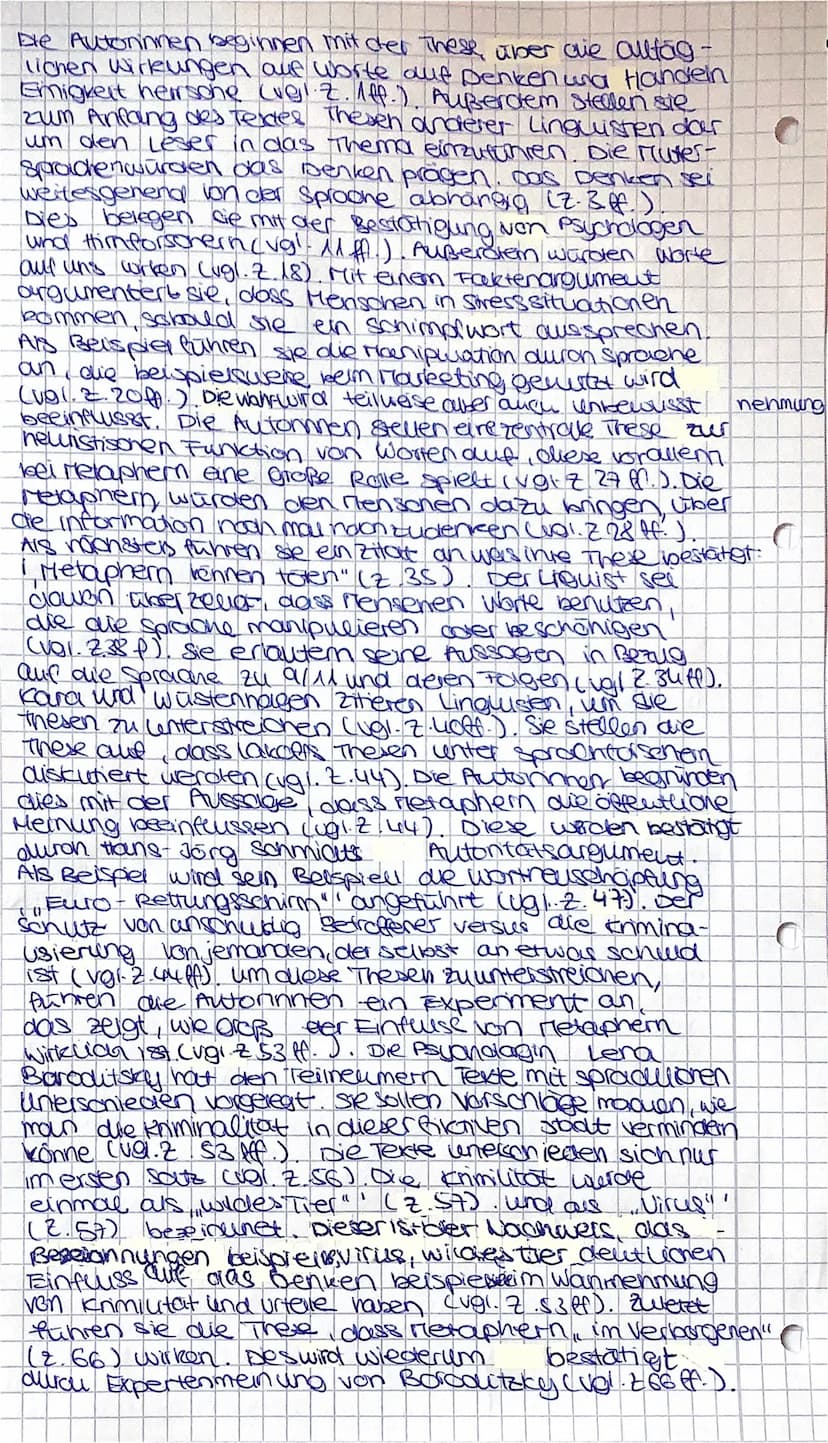 Die Autorinnen beginnen mit der These, über die alltäg-
lichen Wirkungen auf Worte auf Denken und Handeln
Einigkeit herrsche (vgl. Z. 1ff.). Außerdem stellen sie
zum Anfang des Textes Thesen anderer Linguisten dar
um den Leser in das Thema einzuführen. Die Mutter-
sprachen würden das Denken prägen. Das Denken sei
weitesgehend von der Sprache abhängig (Z. 3 ff.).
Dies belegen sie mit der Bestätigung von Psychologen
und Hirnforschern (vgl. 11 ff.). Außerdem würden Worte
auf uns wirken (vgl. Z. 18). Mit einem Faktenargument
argumentiert sie, dass Menschen in Stresssituationen
kommen, sobald sie ein Schimpfwort aussprechen.
Als Beispiel führen sie die Manipulation durch Sprache
an, die beispielsweise beim Marketing genutzt wird
(vgl. Z. 20ff.). Die wahr wird teilweise aber auch unbewusst nehmung
beeinflusst. Die Autorinnen stellen eine zentrale These zur
heuristischen Funktion von Worten auf, diese vorallem
bei Metaphern eine große Rolle spielt (vgl. Z 27 ff.). Die
Metaphern, würden den Menschen dazu bringen, über
die Information noch mal nachzudenken (vgl. Z 28 ff.).
Als nächstes führen sie ein Zitat an was ihre These bestätigt:
"Metaphern können töten" (Z. 35). Der Liguist sei
davon überzeugt, dass Menschen Worte benutzen,
die die Sprache manipulieren oder beschönigen
(vgl. Z. 38 f). Sie erläutern seine Aussagen in Bezug
auf die Sprache zu 9/11 und deren Folgen (vgl Z. 34ff).
Kara und Wüstenhagen zitieren Linguisten, um die
Thesen zu unterstreichen (vgl. Z. 40ff.). Sie stellen die
These auf, dass Lakoffs Thesen unter Sprachforschern
diskutiert werden (vgl. Z. 44). Die Autorinnen begründen
dies mit der Aussage, dass Metaphern die öffentliche
Meinung beeinflussen (vgl. Z. 44). Diese werden bestätigt
durch Hans-Jörg Schmidts Autoritätsargument.
Als Beispiel wird sein Beispiel die Wortneuschöpfung
"Euro-Rettungsschirm" angeführt (vgl. Z. 47). Der
Schutz von unschuldig Betroffener versus die Krimina-
lisierung von jemanden, der selbst an etwas schuld
ist (vgl. Z. 44 ff). Um diese Thesen zu unterstreichen,
führen die Autorinnen ein Experiment an,
das zeigt, wie groß der Einfluss von Metaphern
wirklich ist (vgl. Z 53 ff.). Die Psychologin Lera
Boroditsky hat den Teilnehmern Texte mit sprachlichen
Unterschieden vorgelegt. Sie sollen Vorschläge machen, wie
man die Kriminalität in dieser fiktiven Stadt vermindern
könne (vgl. Z. 53 ff.). Die Texte unterschieden sich nur
im ersten Satz (vgl. Z. 56). Die Krimilität werde
einmal als "wildes Tier" (Z. 57) und als "Virus"
(Z. 57) bezeichnet. Dieser ist der Nachweis, das
Bezeichnungen beispiels virus, wildes tier deutlichen
Einfluss auf das Denken beim Wahrnehmung
von Krimilität und Urteile haben (vgl. Z. 53 ff). Zuletzt
führen sie die These, dass Metaphern "im Verborgenen"
(Z. 66) wirken. Des wird wiederum bestätigt
durch Expertenmeinung von Boroditzky (vgl. Z 66 ff.).